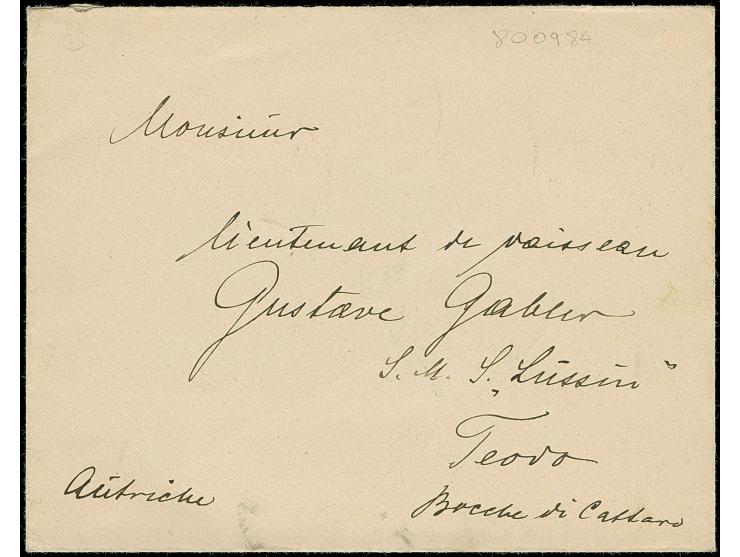 800984
Monsieur
lieutenant de vaisseau
Gustave Gabler
S. M. S. „Lussin"
Teodo
Autriche
Bocche di Cattaro